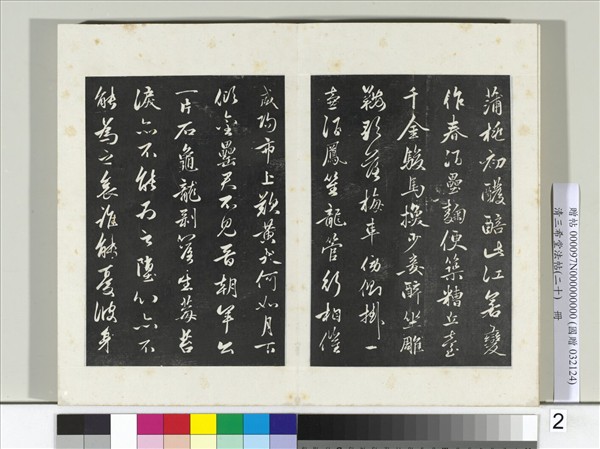 蒲桃初醱醅此江若變
作春酒壘麴便築糟丘臺
千金駿馬換少妾醉坐雕
鞍歌落梅車傍側掛一
壺酒鳳笙龍管行相催
咸陽市上歎黃犬何如月下
傾金罍君不見晉朝羊公
一片石龜龍剝落生莓苔
淚亦不能為之墮心亦不
能為之哀誰能憂彼身
贈帖 000097N000000000 (國贈 032124)
清三希堂法帖(二十) 冊
2